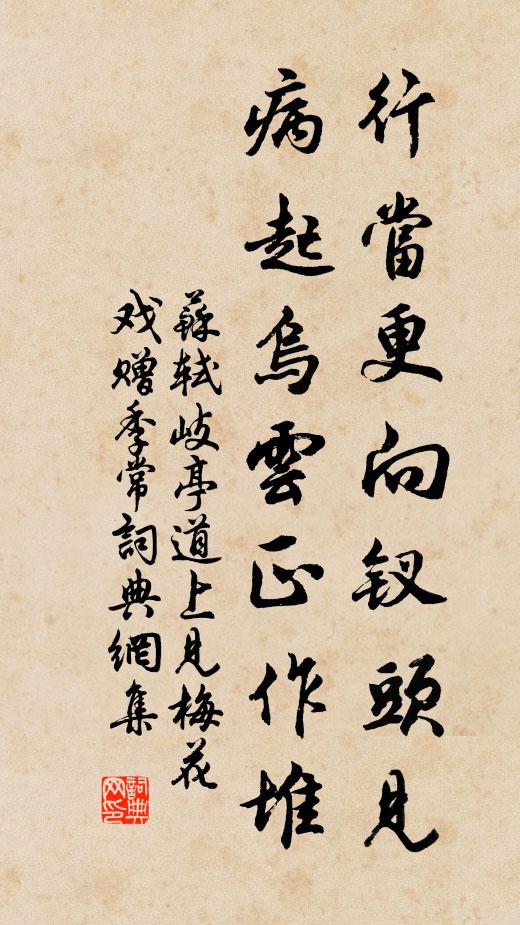 行當更向釵頭見
病起烏雲正作堆
蘇軾岐亭道上見梅花
戏赠季常詞典網集
詞典网印